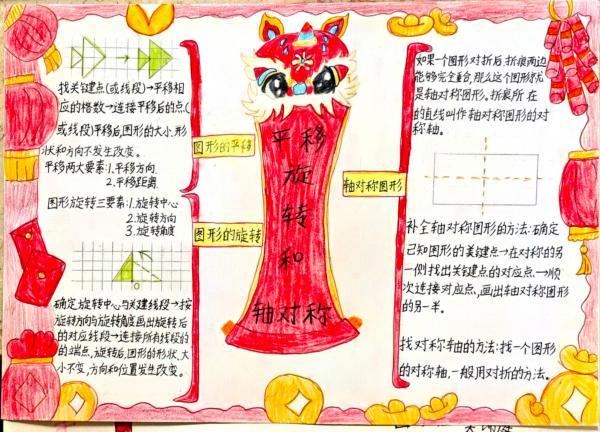 平移
旋
转
和
轴对称
图形的平移
找关键点(或线段)→平移相
应的格数→连接平移后的点(
或线段)平移后,图形的大小、形
状和方向不发生改变。
平移两大要素:1.平移方向
2.平移距离
图形的旋转
图形旋转三要素:1.旋转中心
2.旋转方向
3.旋转角度
O
确定旋转中心与关建线段→按
旋转方向与旋转角度画出旋转后
的对应线段→连接所有线段的
的端点,旋转后,图形的形状、大
小不变,方向和位置发生改变。
轴对称图形
如果一个图形对折后,折痕两边
能够完全重合,那么这个图形就
是轴对称图形。折痕所在
的直线叫作轴对称图形的对
称轴。
补全轴对称图形的方法:确定
己知图形的关键点→在对称的另
一侧找出关键点的对应点→顺
次连接对应点,画出轴对称图形
的另一半。
找对称轴的方法:找一个图形
的对称轴,一般用对折的方法。